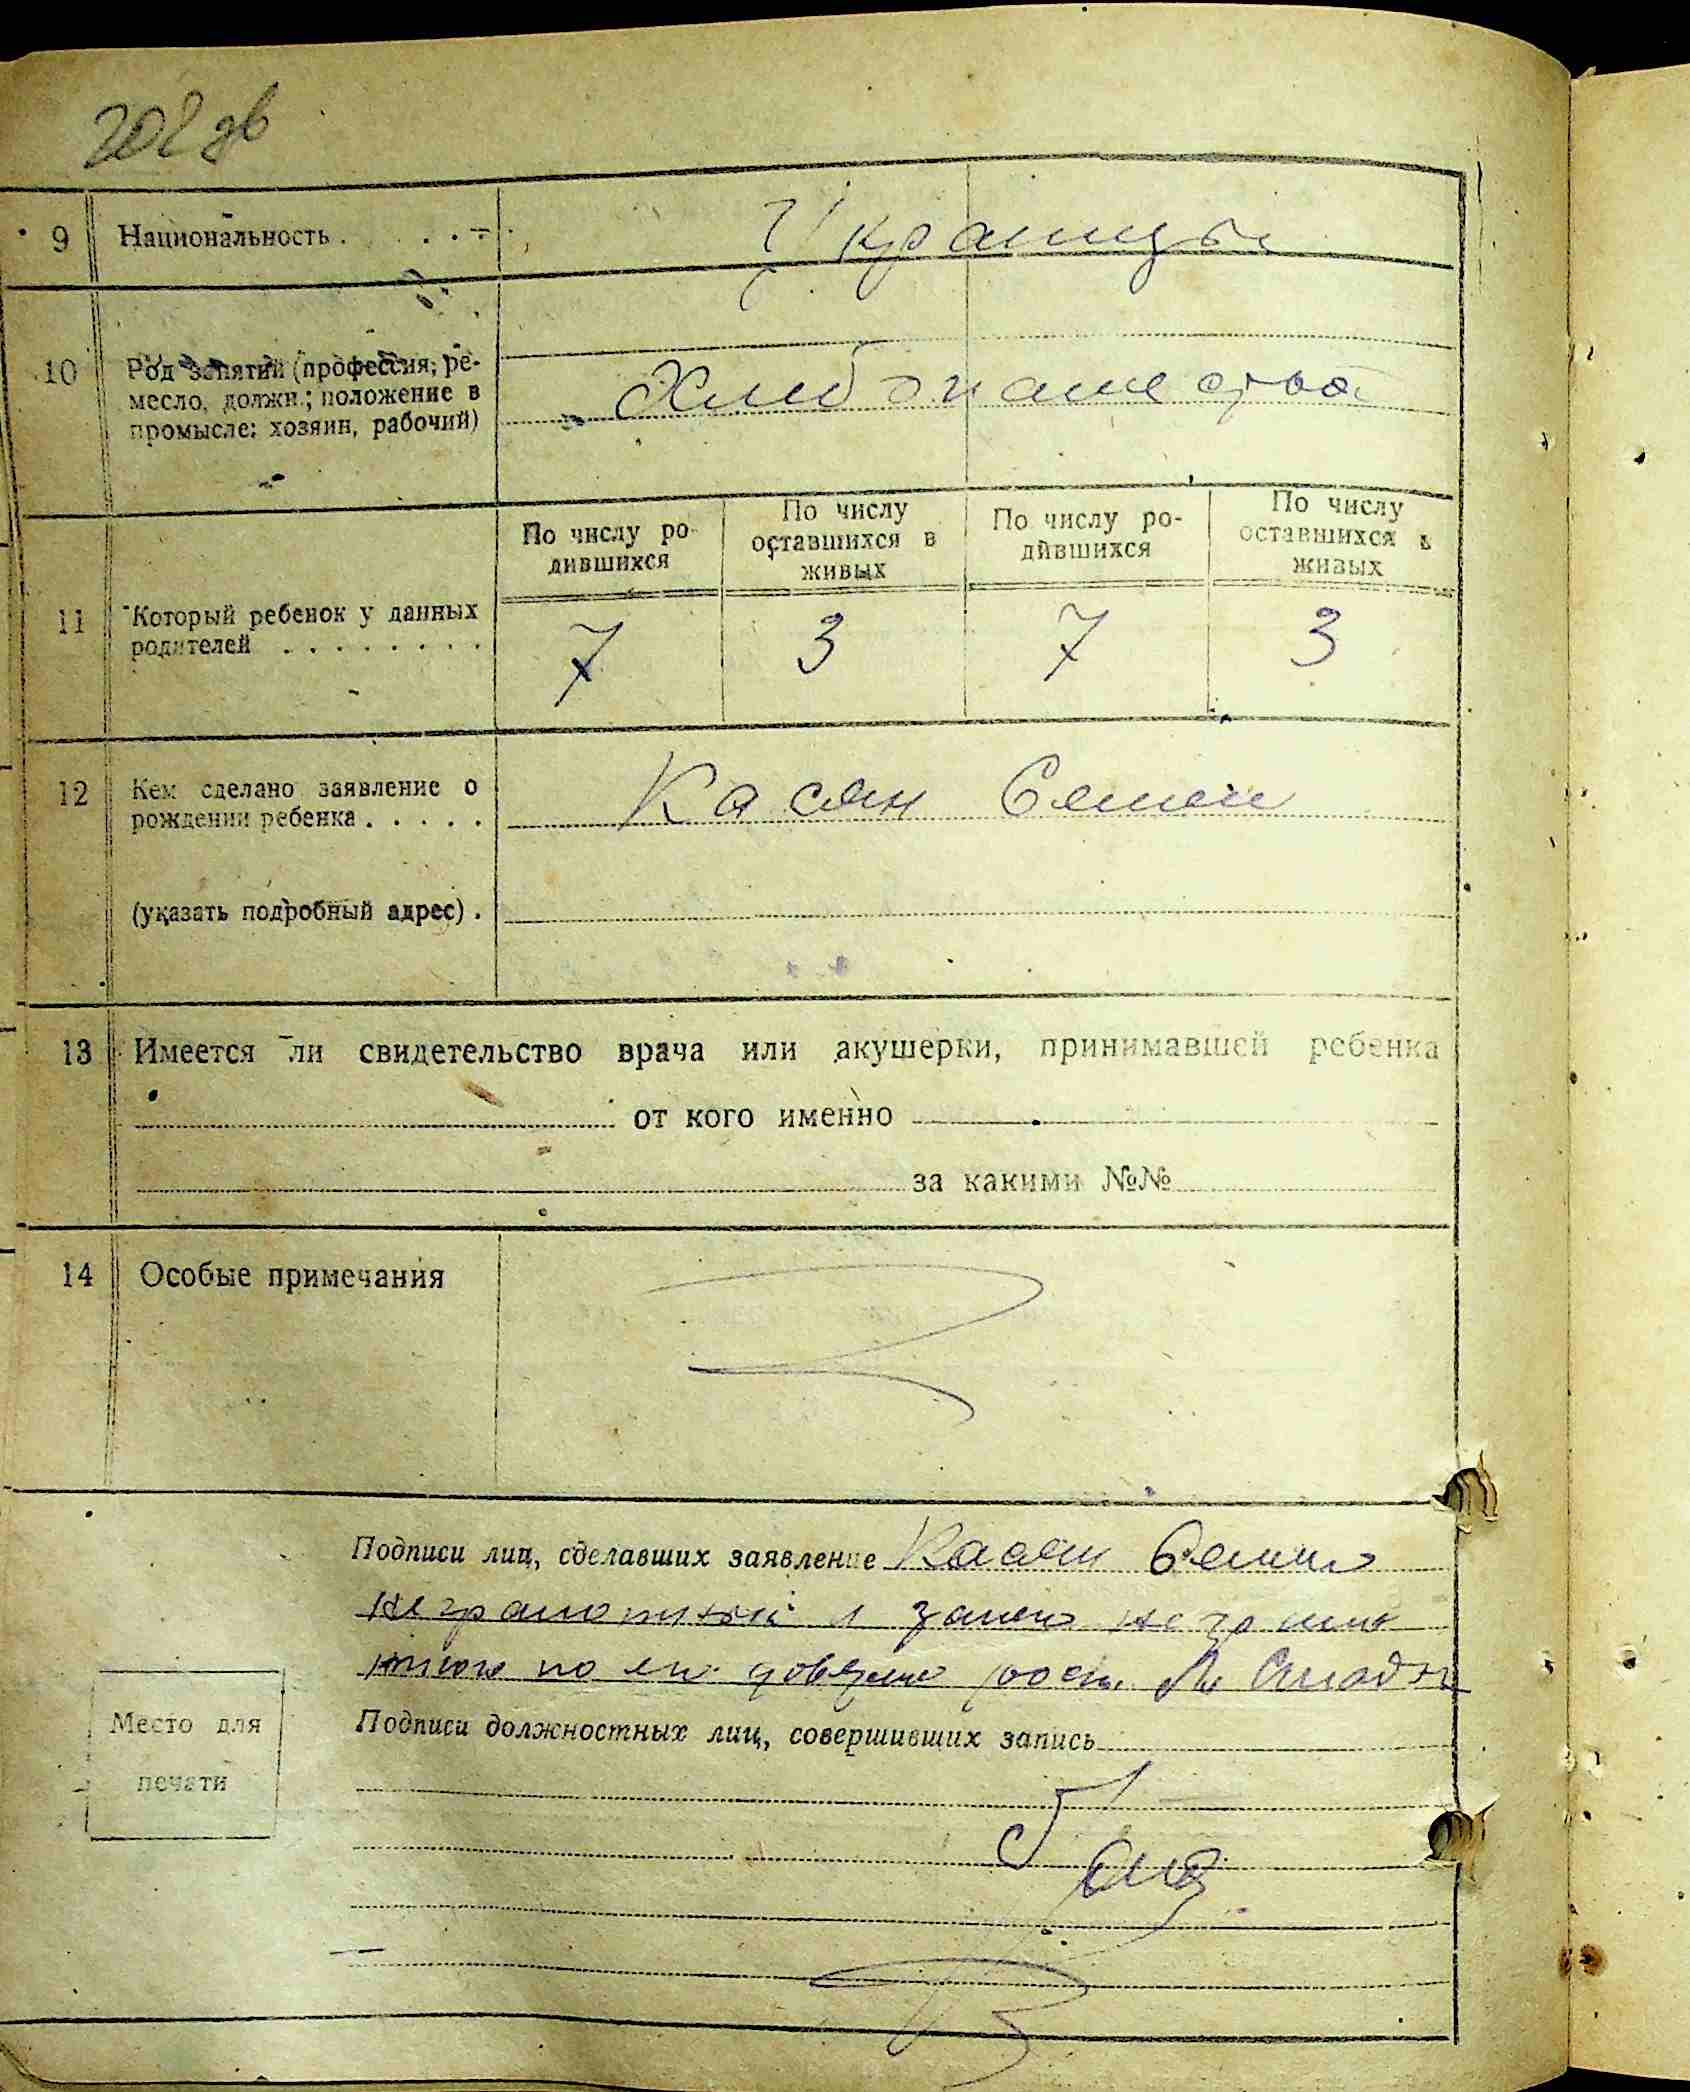 202 дв
9 Национальность . . . . -
Украинцы
10 Род занятий (профессия; ре-
месло, должн.; положение в
промысле: хозяин, рабочий)
Хлибопашества
По числу ро-
дившихся
По числу
оставшихся в
живых
По числу ро-
дившихся
По числу
оставшихся в
живых
11 Который ребенок у данных
родителей . . . . . . . .
7 3 7 3
12 Кем сделано заявление о
рождении ребенка . . . . .
Касян Семен
(указать подробный адрес) .
13 Имеется ли свидетельство врача или акушерки, принимавшей ребенка
от кого именно
за какими №№
14 Особые примечания
Подписи лиц, сделавших заявление Касян Семен
неграмотный а за него неграмот
по его
Подписи должностных лиц, совершивших запись
Место для
печати